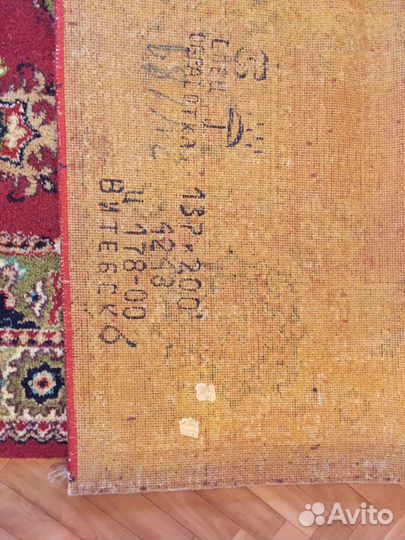 СПЕЦ
ОБРАБОТКА
137×200
1243
Ц 178-00
ВИТЕБСК 6
Avito